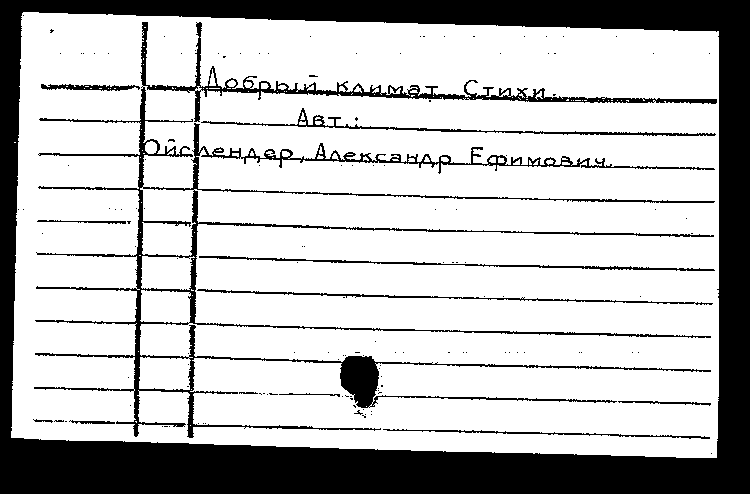 Добрый климат. Стихи.
Авт.:
Ойслендер, Александр Ефимович.